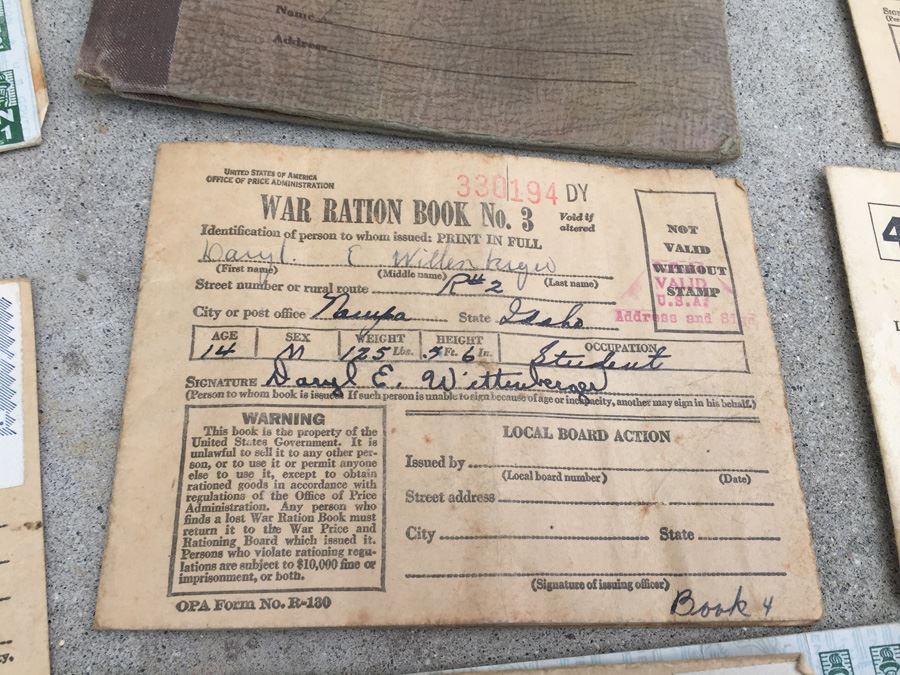 Name
Address
UNITED STATES OF AMERICA
OFFICE OF PRICE ADMINISTRATION
330194 DY
WAR RATION BOOK No. 3
Void if
altered
Identification of person to whom issued: PRINT IN FULL
Daryl. E Wittenberger
(First name) (Middle name) (Last name)
Street number or rural route R#2
City or post office Nampa State Idaho
AGE SEX WEIGHT HEIGHT OCCUPATION
14 M 125 Lbs. 5 Ft. 6 In. Student
SIGNATURE Daryl E. Wittenberger
(Person to whom book is issued. If such person is unable to sign because of age or incapacity, another may sign in his behalf.)
NOT
VALID
WITHOUT
STAMP
VALID
U.S.A.
Address and
WARNING
This book is the property of the
United States Government. It is
unlawful to sell it to any other per-
son, or to use it or permit anyone
else to use it, except to obtain
rationed goods in accordance with
regulations of the Office of Price
Administration. Any person who
finds a lost War Ration Book must
return it to the War Price and
Rationing Board which issued it.
Persons who violate rationing regu-
lations are subject to $10,000 fine or
imprisonment, or both.
OPA Form No. R-130
LOCAL BOARD ACTION
Issued by
(Local board number) (Date)
Street address
City State
(Signature of issuing officer)
Book 4
4